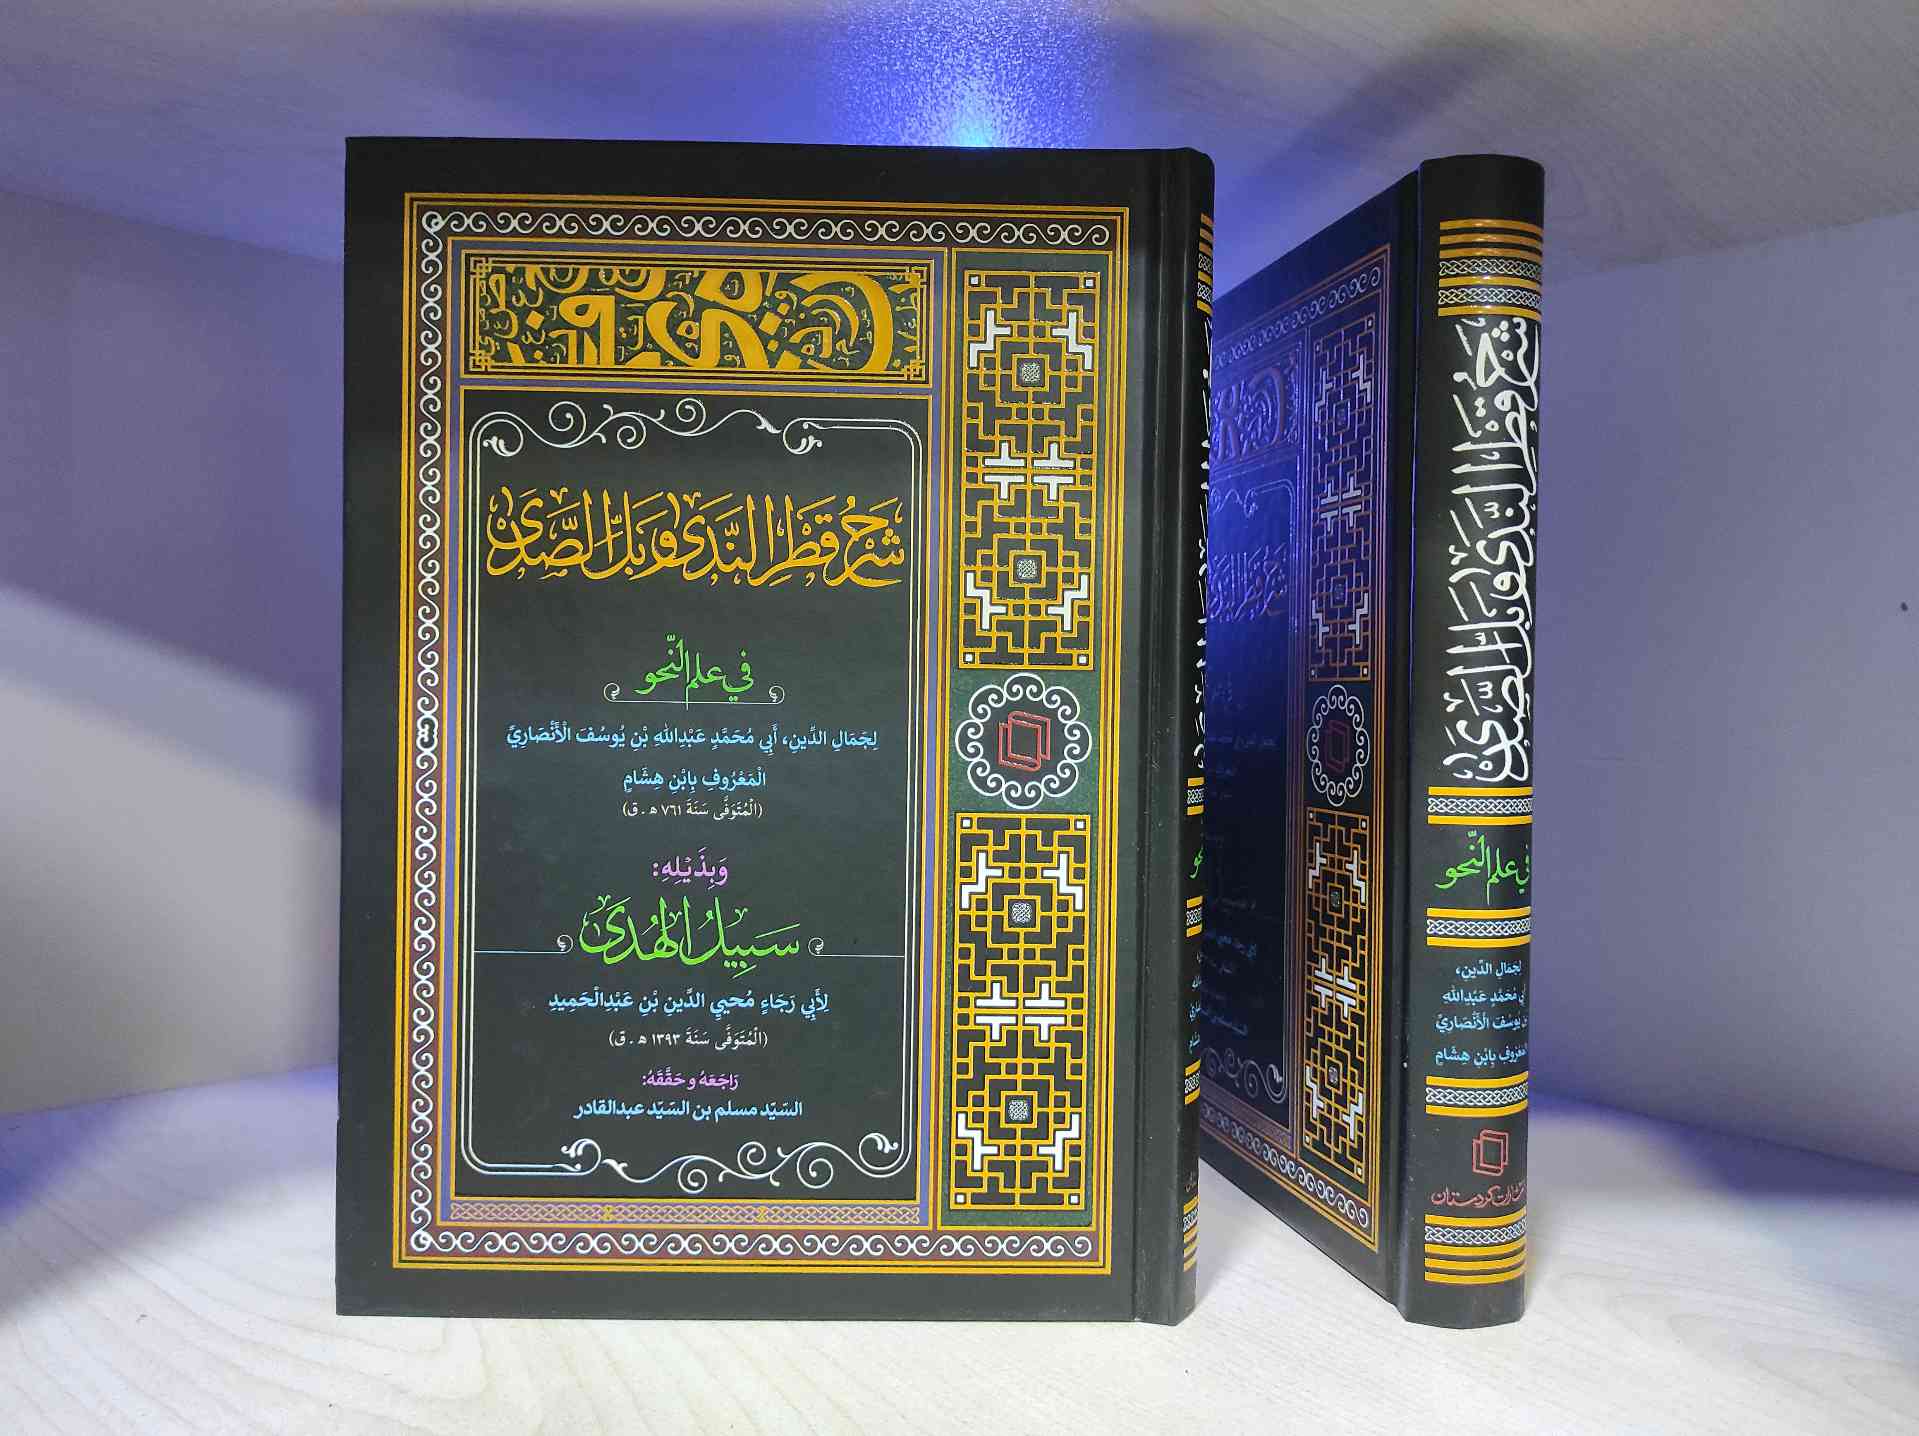 شَرْحُ قَطْرِ النَّدَىٰ وَبَلِّ الصَّدَىٰ
في علم النّحو
لِجَمَالِ الدِّينِ، أَبِي مُحَمَّدٍ عَبْدِاللهِ بْنِ يُوسُفَ الْأَنْصَارِيِّ
الْمَعْرُوفِ بِابْنِ هِشَامٍ
(الْمُتَوَفَّى سَنَةَ ٧٦١ ه‍ . ق)
وَبِذَيْلِهِ:
سَبِيلُ الهُدَىٰ
لِأَبِي رَجَاءٍ مُحيِي الدَّينِ بْنِ عَبْدِالْحَمِيدِ
(الْمُتَوَفَّى سَنَةَ ١٣٩٣ ه‍ . ق)
رَاجَعَهُ و حَقَّقَهُ:
السَيّد مسلم بن السَيّد عبدالقادر
شَرْحُ قَطْرِ النَّدَىٰ وَبَلِّ الصَّدَىٰ
في علم النّحو
لِجَمَالِ الدِّينِ،
أَبِي مُحَمَّدٍ عَبْدِاللهِ
بْنِ يُوسُفَ الْأَنْصَارِيِّ
الْمَعْرُوفِ بِابْنِ هِشَامٍ
انتشارات کردستان